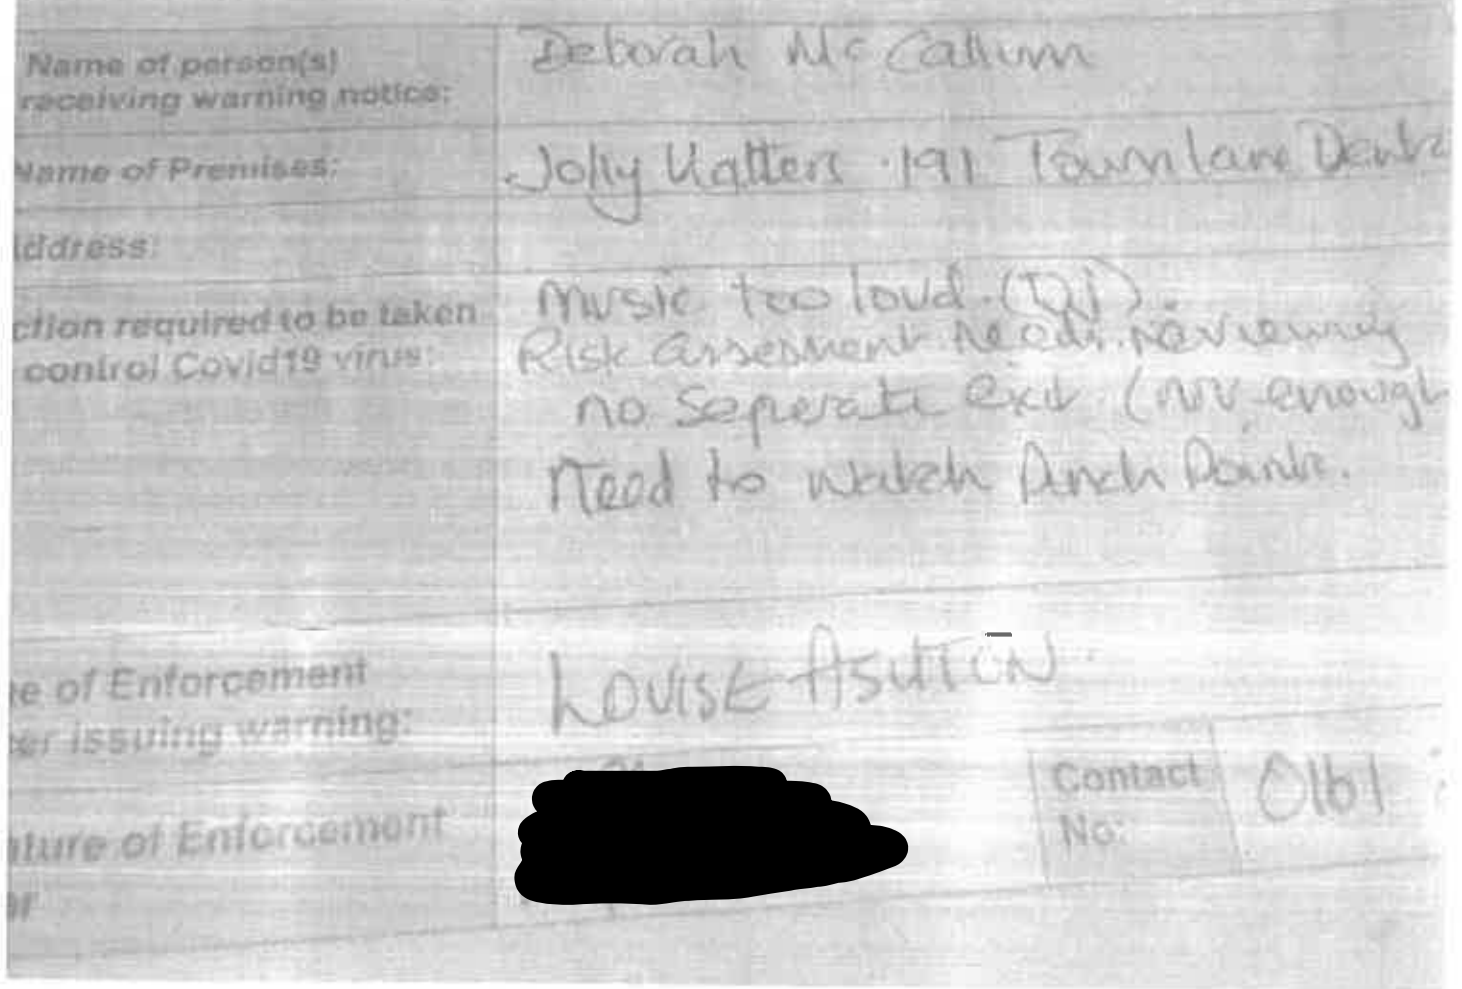 Name of person(s)
receiving warning notice:
Deborah McCallum
Name of Premises:
Jolly Hatters 191 Town lane Dent
ddress:
ction required to be taken
control Covid19 virus:
Music too loud. (DJ).
Risk Assesment needs reviewing
no seperate exit (not enough
need to watch Pinch Points.
e of Enforcement
er issuing warning:
LOUISE ASHTON
ature of Enforcement
er
Contact
No:
0161